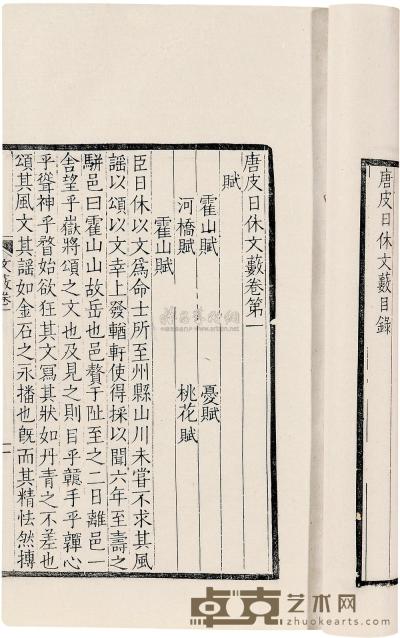 唐皮日休文藪目錄
唐皮日休文藪卷第一
賦
霍山賦 憂賦
河橋賦 桃花賦
霍山賦
臣日休以文爲命士所至州縣山川未嘗不求其風
謠以頌以文幸上發輶軒使得採以聞六年至壽之
駢邑曰霍山山故岳也邑贅于趾至之二日離邑一
舍望乎嶽將頌之文也及見之則目乎手乎心
乎聳神乎瞀始欲狂其文寫其狀如丹青之不差也
頌其風文其謠如金石之永播也旣而其精怯然搏
文藪卷一
一
卓克艺术网
zhuokearts.com